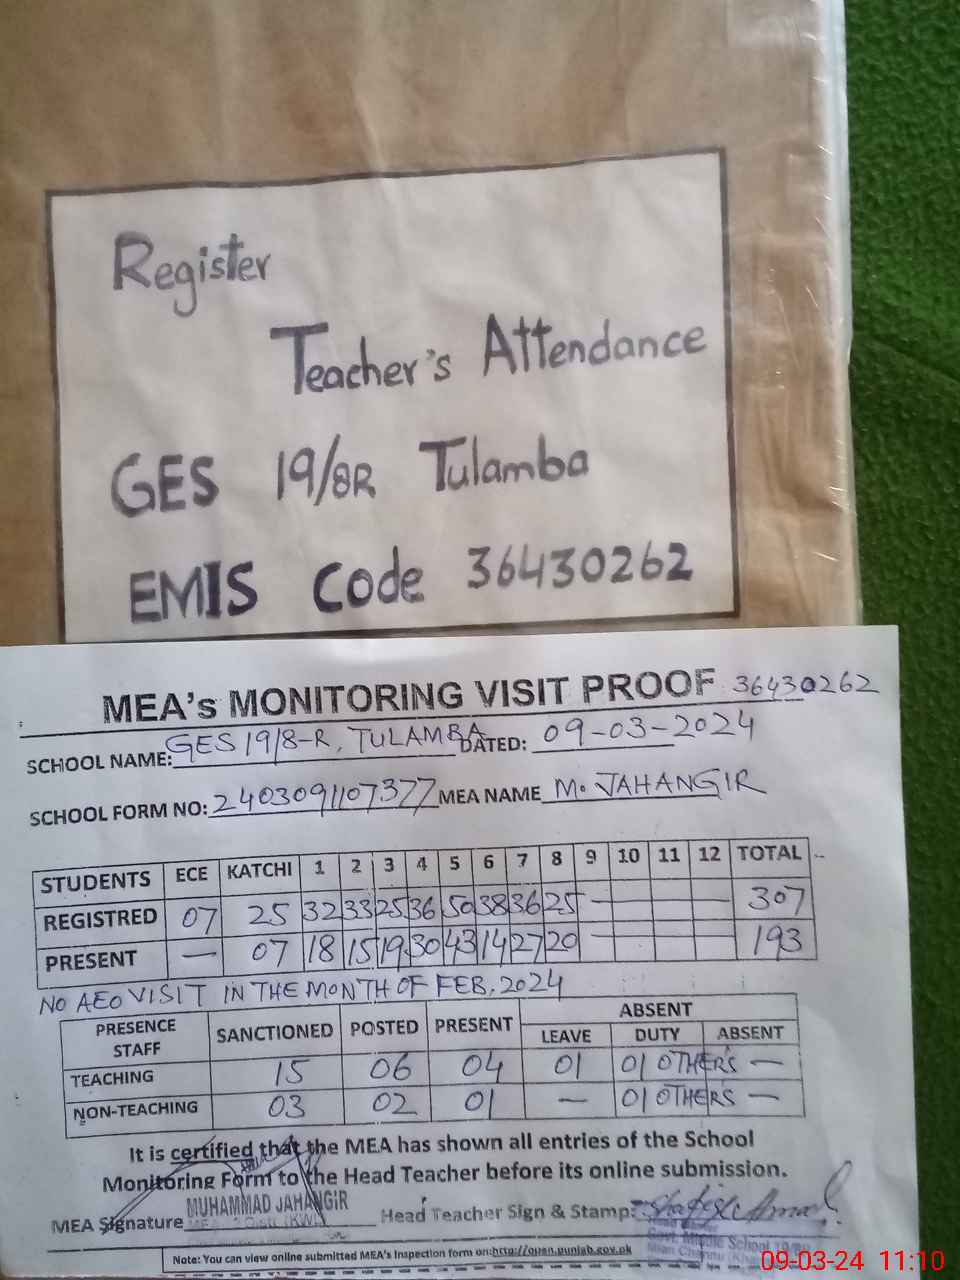 Register
Teacher's Attendance
GES 19/8R Tulamba
EMIS Code 36430262
MEA's MONITORING VISIT PROOF 36430262
SCHOOL NAME: GES 19/8-R, TULAMBA DATED: 09-03-2024
SCHOOL FORM NO: 2403091107377 MEA NAME M. JAHANGIR
STUDENTS ECE KATCHI 1 2 3 4 5 6 7 8 9 10 11 12 TOTAL
REGISTRED 07 25 32 33 25 36 50 38 36 25 — 307
PRESENT — 07 18 15 19 30 43 14 27 20 — 193
NO AEO VISIT IN THE MONTH OF FEB, 2024
PRESENCE STAFF SANCTIONED POSTED PRESENT ABSENT
LEAVE DUTY ABSENT
TEACHING 15 06 04 01 01 OTHERS —
NON-TEACHING 03 02 01 — 01 OTHERS —
It is certified that the MEA has shown all entries of the School
Monitoring Form to the Head Teacher before its online submission.
MUHAMMAD JAHANGIR
MEA Signature Head Teacher Sign & Stamp:
Govt. Middle School 19/8R
Note: You can view online submitted MEA's Inspection form on:http://open.punjab.gov.pk
09-03-24 11:10